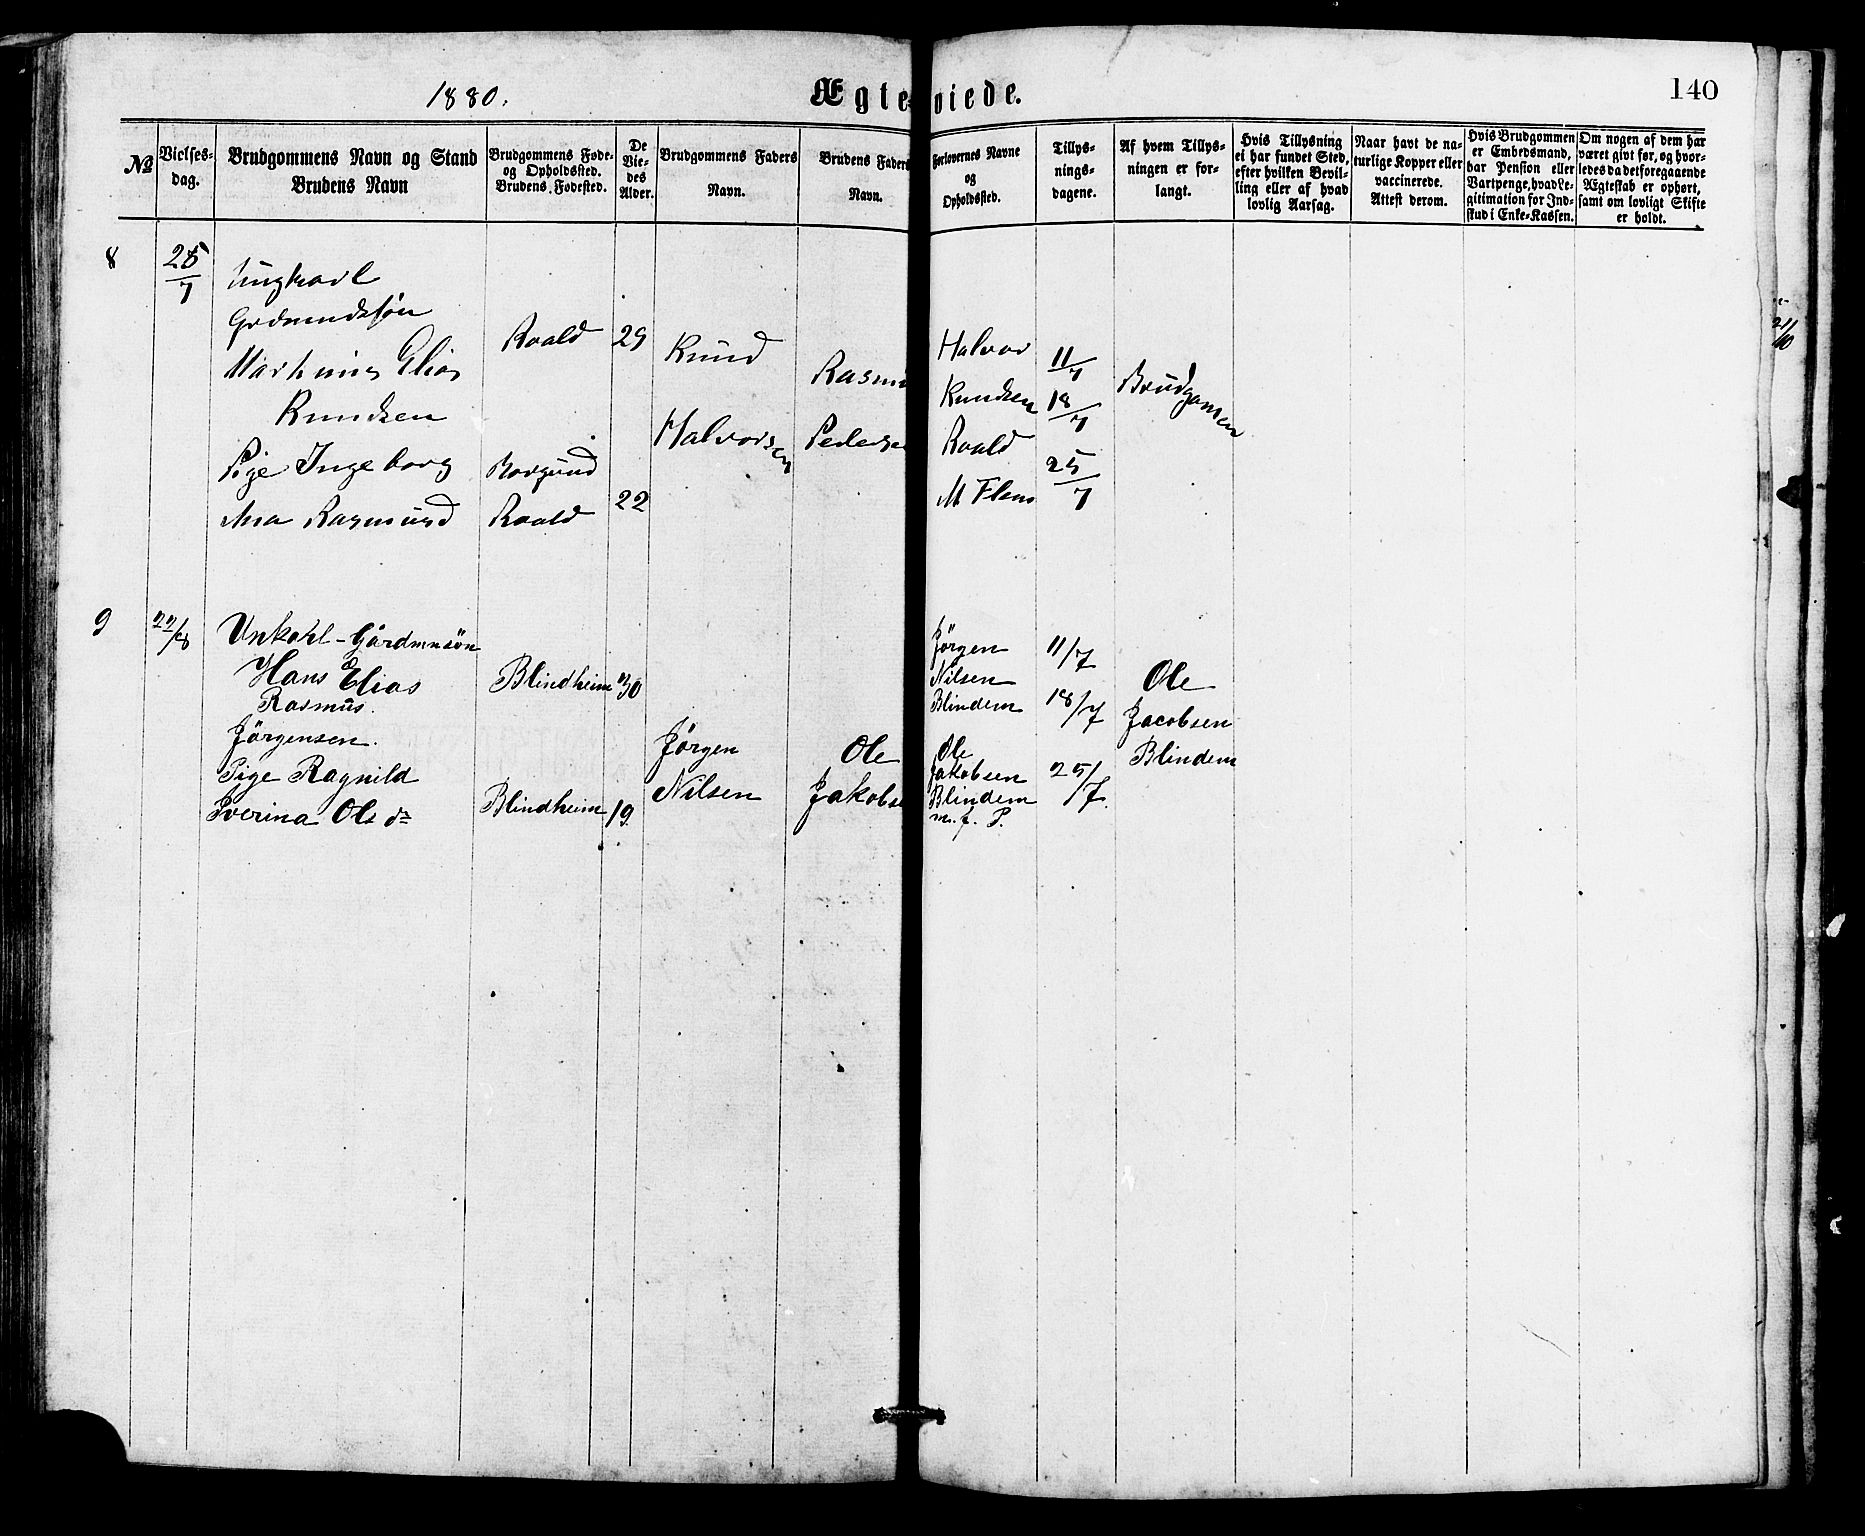 1880.
Ægteviede.
140
No
Vielses-
dag.
Brudgommens Navn og Stand
Brudens Navn
Brudgommens Føde-
og Opholdssted.
Brudens Fødested.
De
Vie-
des
Alder.
Brudgommens Faders
Navn.
Brudens Faders
Navn.
Forlovernes Navne
og
Opholdssted.
Tillys-
nings-
dagene.
Af hvem Tillys-
ningen er for-
langt.
Hvis Tillysning
ei har fundet Sted,
efter hvilken Bevil-
ling eller af hvad
lovlig Aarsag.
Naar havt de na-
turlige Kopper eller
vaccinerede.
Attest derom.
Hvis Brudgommen
er Embedsmand,
har Pension eller
Vartpenge, hvad Le-
gitimation for Ind-
skud i Enke-Kassen.
Om nogen af dem har
været givt før, og hvor-
ledes da det foregaaende
Ægteskab er ophørt,
samt om lovligt Skifte
er holdt.
8
25/7
Ungkarl
Grdmundssøn
Martinus Elias
Knudsen
Pige Ingeborg
Ana Rasmusd
Roald
Borgund
Roald
29
22
Knud
Halvorsen
Rasmu
Pederse
Halvor
Knudsen
Roald
M Flem
11/7
18/7
25/7
Brudgomen
9
22/8
Unkahl - Gårdmnsön
Hans Elias
Rasmus.
Jørgensen.
Pige Ragnild
Iverina Ols dr
Blindheim
Blindheim
30
19
Jørgen
Nilsen
Ole
Jakobse
Jørgen
Nilsen
Blindem
Ole
Jakobsen
Blindem
m. f. P.
11/7
18/7
25/7
Ole
Jacobsen
Blindem